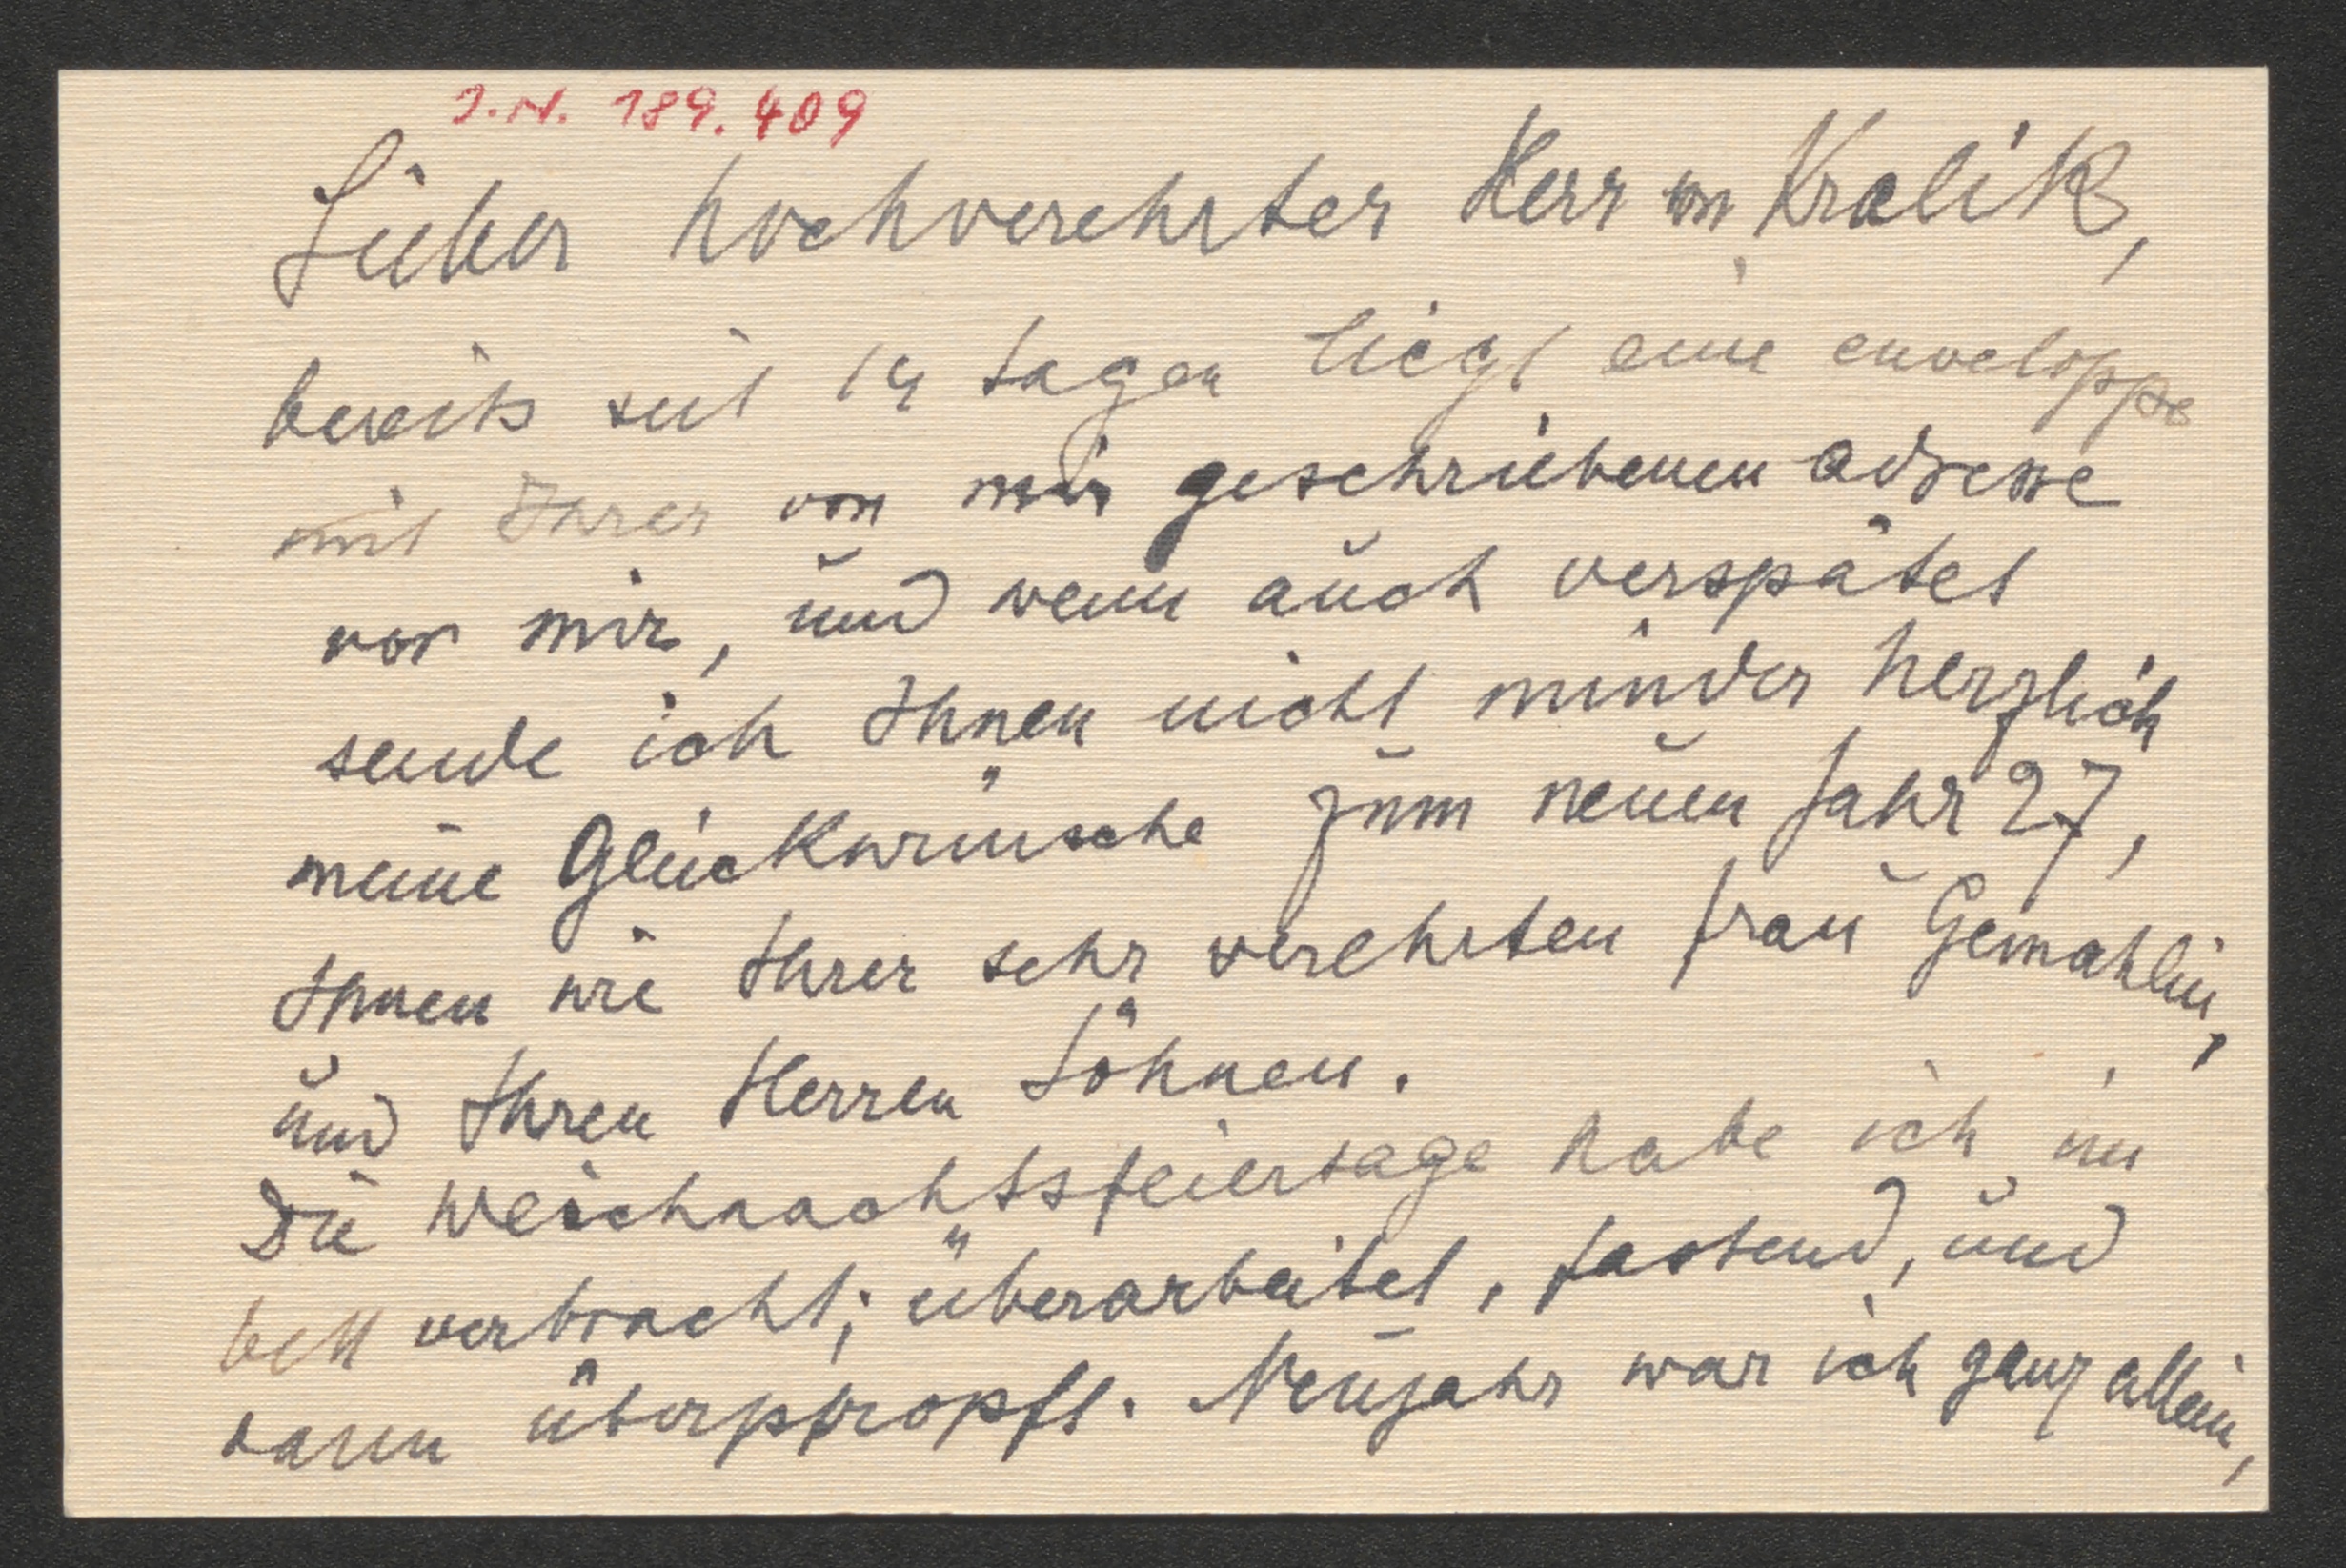 I.N. 189.409
Lieber hochverehrter Herr von Kralik,
bereits seit 14 tagen liegt eine enveloppe
mit Ihrer von mir geschriebenen adresse
vor mir, und wenn auch verspätet
sende ich Ihnen nicht minder herzlich
meine Glückwünsche zum neuen Jahr 27,
Ihnen wie Ihrer sehr verehrten frau Gemahlin,
und Ihren Herren Söhnen.
Die Weichnachtsfeiertage habe ich im
bett verbracht; überarbeitet, fastend, und
dann überpfropft. Neujahr war ich ganz allein,